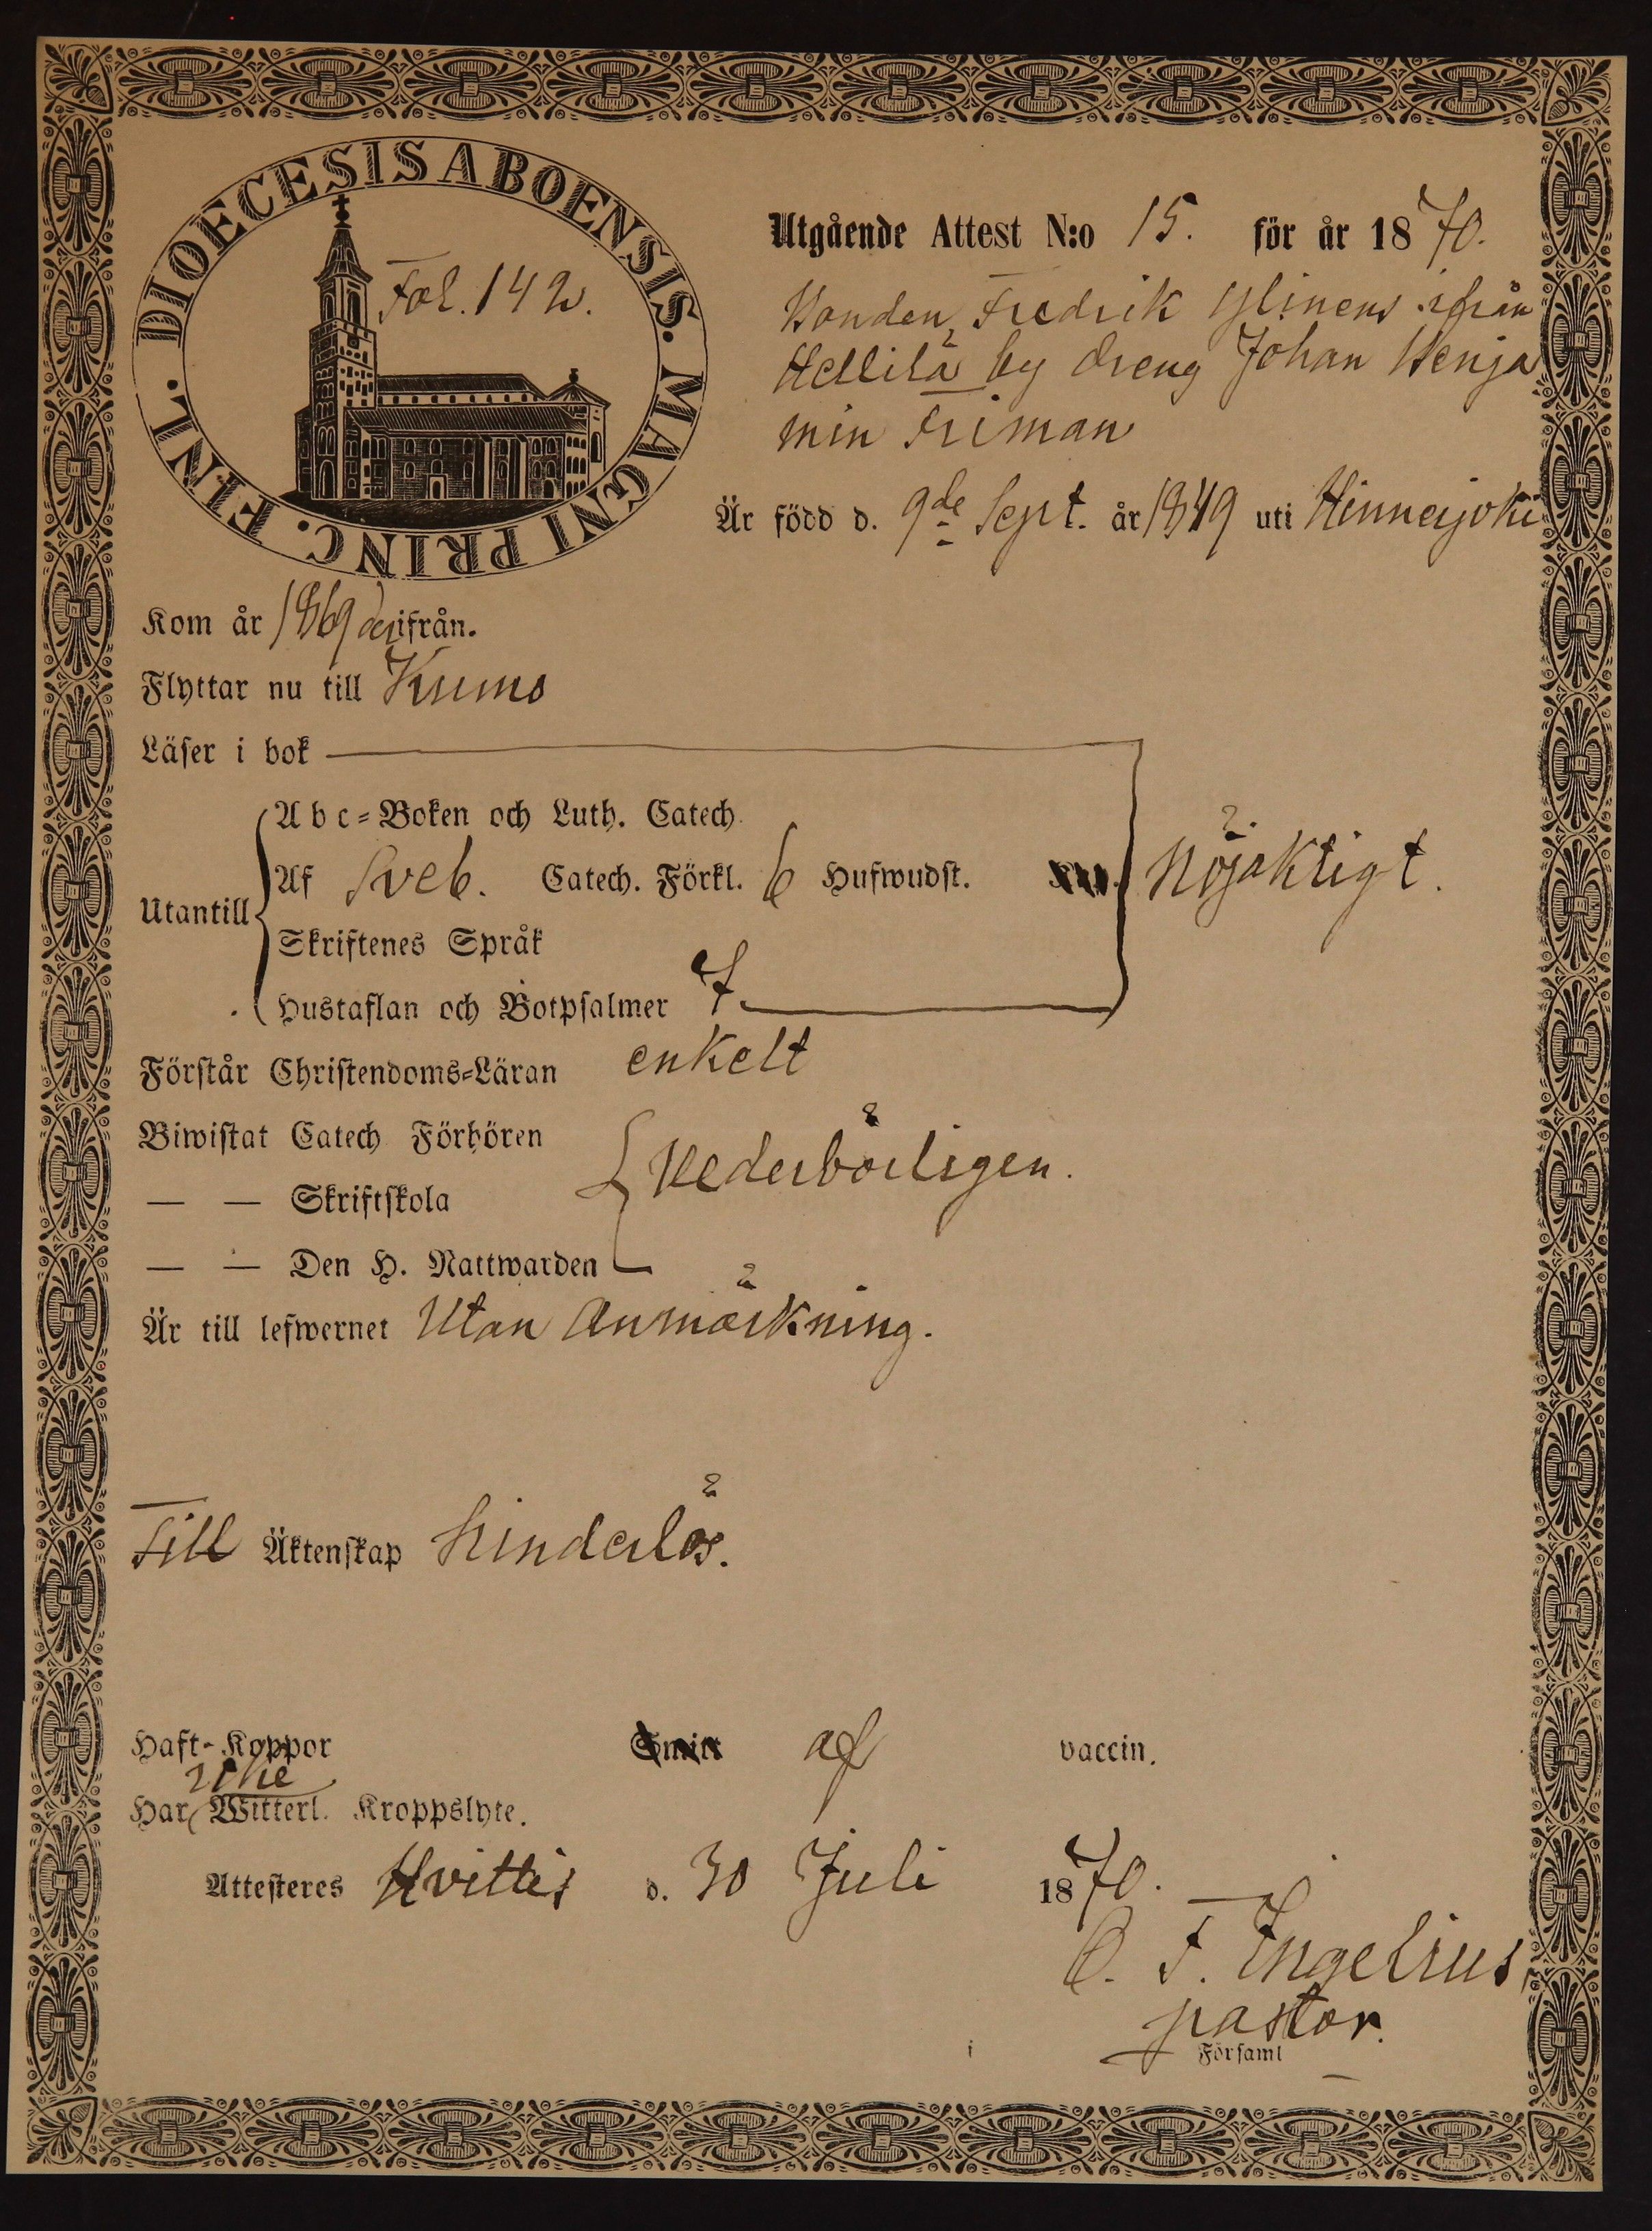 DIOECESIS ABOENSIS. MAGNI PRINC. FINL.
Fol. 142.
Utgående Attest N:o 15. för år 1870.
Bonden Fredrik Ylinens ifrån
Hellilä by dreng Johan Benja
min Friman
Är född d. 9de Sept. år 1849 uti Hinnerjoki
Kom år 1869 derifrån.
Flyttar nu till Kumo
Läser i bok
Abc-Boken och Luth. Catech.
Utantill Af Sveb. Catech. Förkl. 6 Hufwudst. nöjaktigt.
Skriftenes Språk
Hustaflan och Botpsalmer 7.
Förstår Christendoms-Läran enkelt
Biwistat Catech Förhören
— — Skriftskola Vederbörligen.
— — Den H. Nattwarden
Är till lefwernet Utan Anmärkning.
Till Äktenskap hinderlös.
Haft Koppor af vaccin.
icke
Har Witterl. Kroppslyte.
Attesteres Hvittis d. 30 Juli 1870.
O. F. Ingelius
pastor.
i Församl